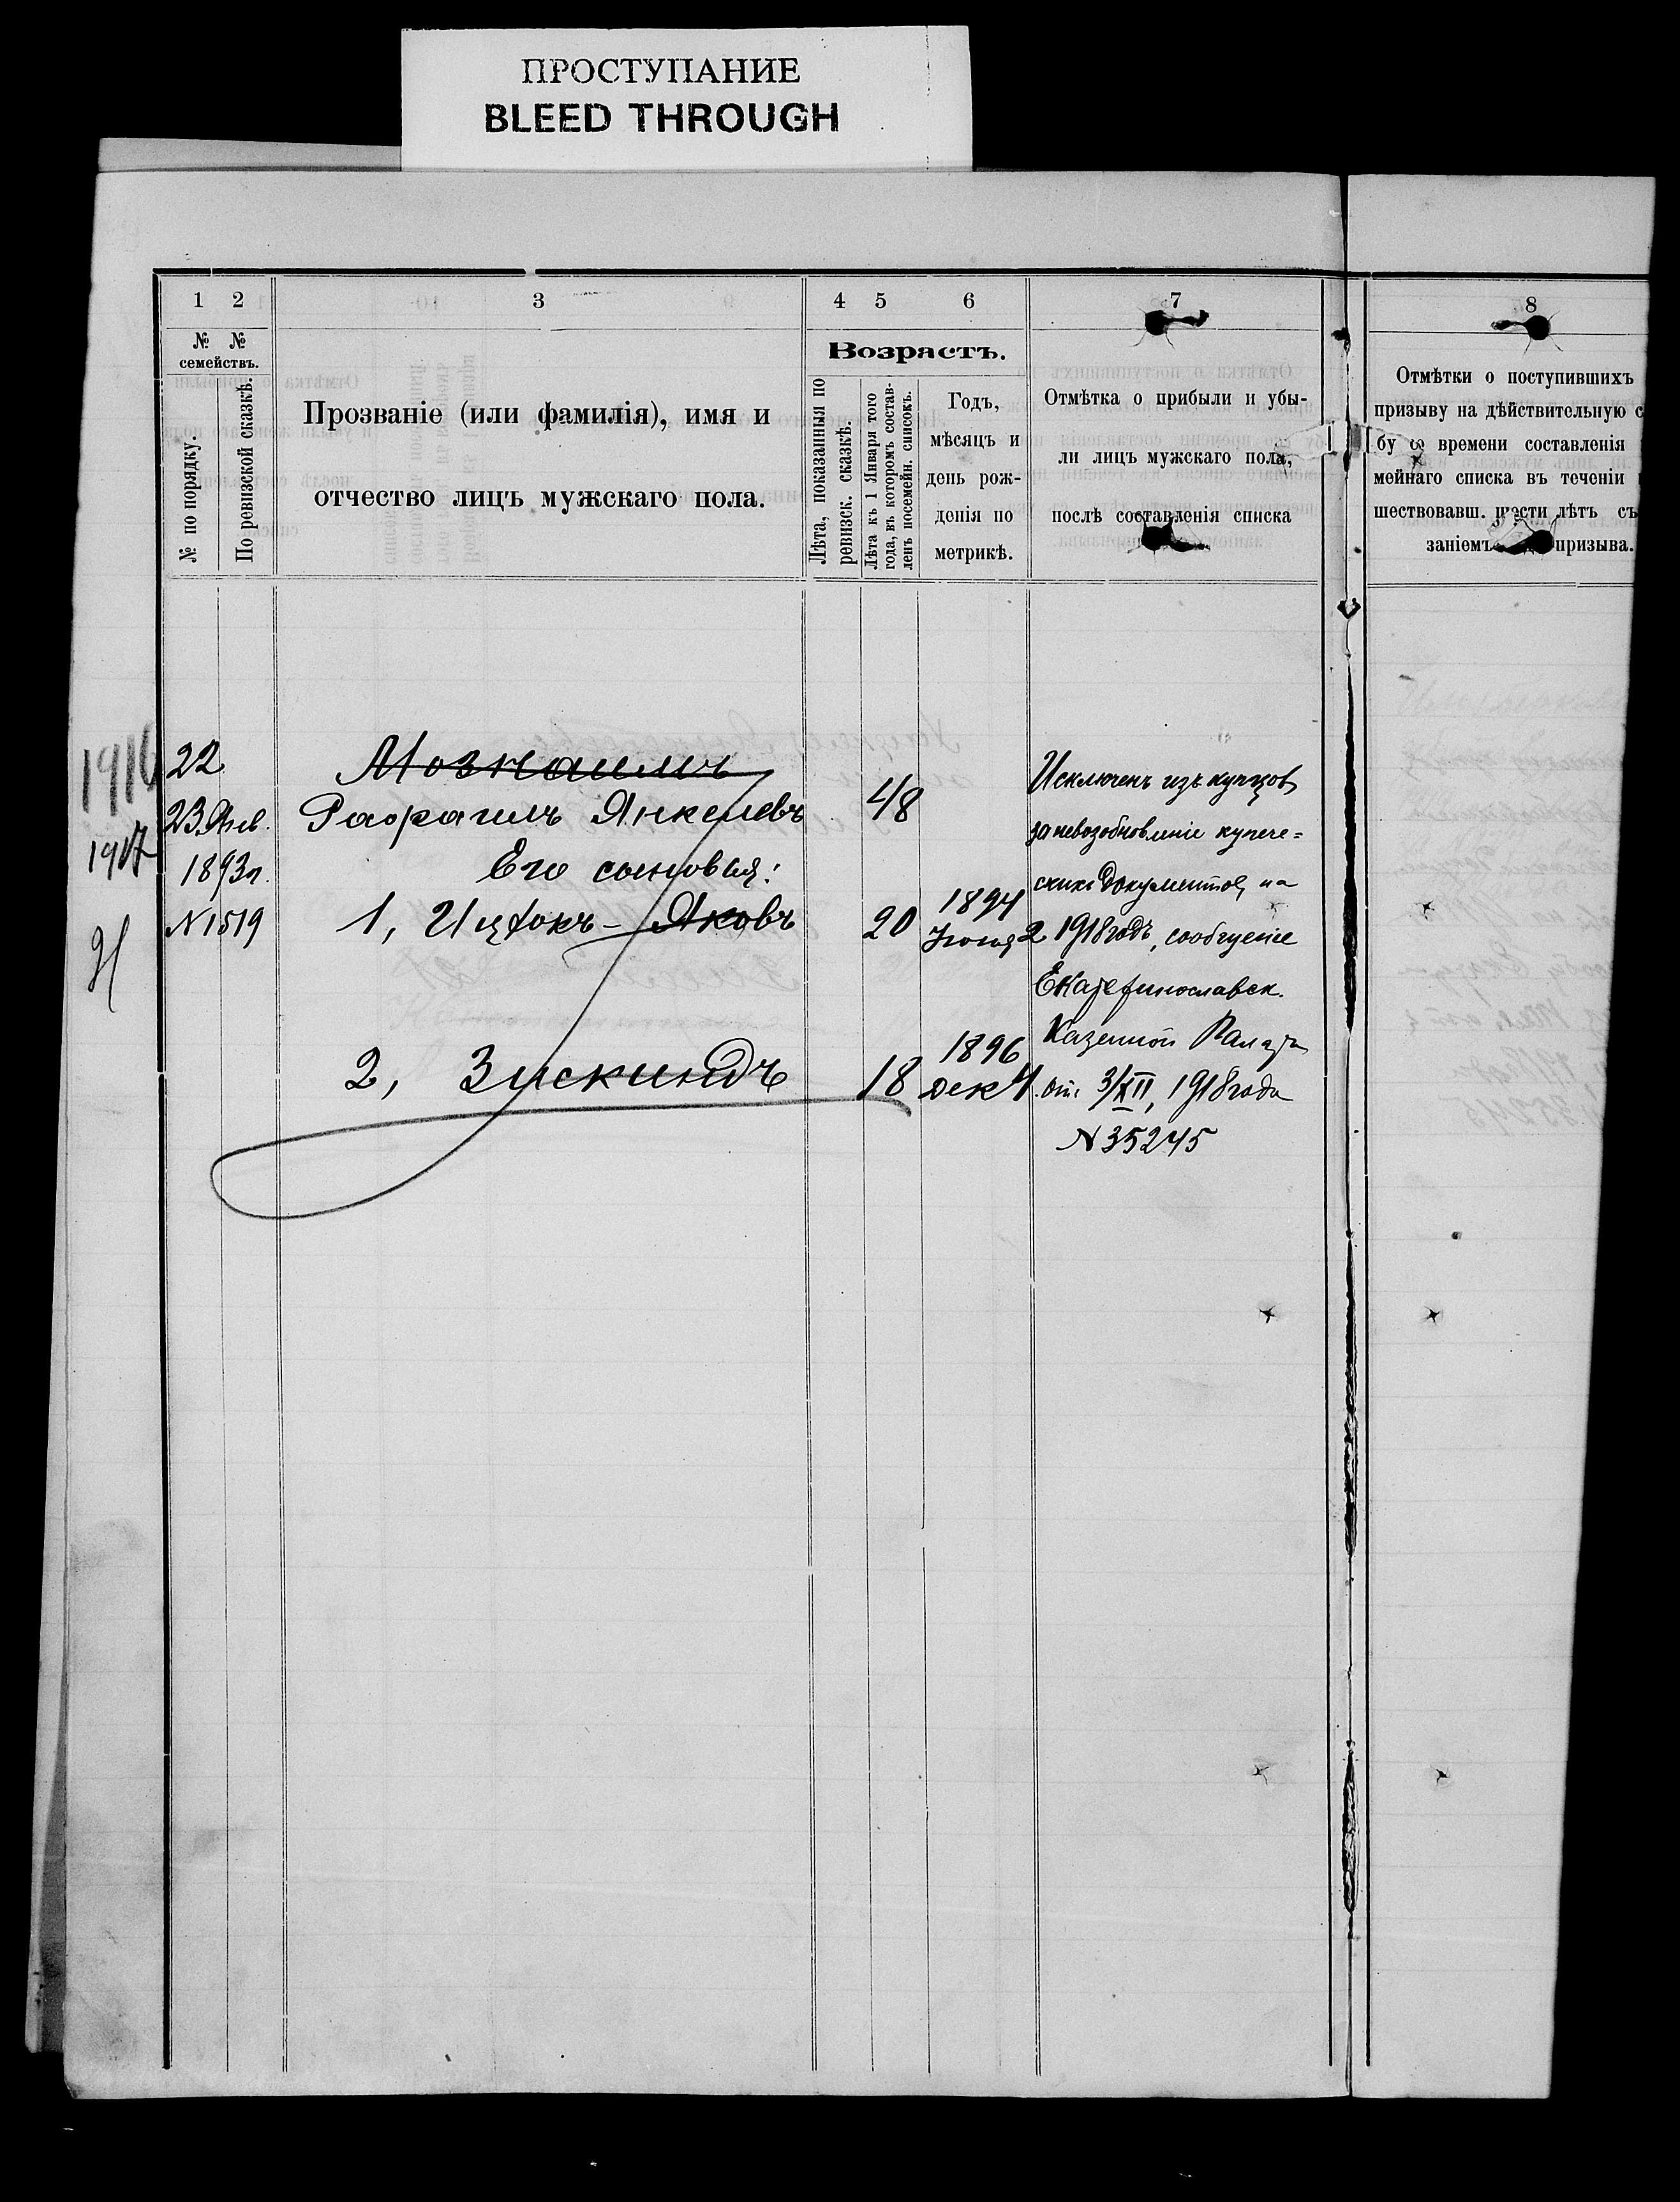 ПРОСТУПАНИЕ
BLEED THROUGH
1 2 3 4 5 6 7 8
№ № семействъ.
№ по порядку.
По ревизской сказкѣ.
Прозваніе (или фамилія), имя и
отчество лицъ мужскаго пола.
Возрастъ.
Лѣта, показанныя по
ревизск. сказкѣ.
Лѣта къ 1 Января того
года, въ которомъ состав-
ленъ посемейн. списокъ.
Годъ,
мѣсяцъ и
день рож-
денія по
метрикѣ.
Отмѣтка о прибыли и убы-
ли лицъ мужскаго пола,
послѣ составленія списка
Отмѣтки о поступившихъ
призыву на дѣйствительную с
бу со времени составленія
мейнаго списка въ теченіи
шествовавш. шести лѣтъ съ
заніемъ призыва.
1916
1917
22
23 Янв.
1893 г.
N 1519
Рафаилъ Янкелевъ 48
Его сыновья:
1, Ицхокъ-Яковъ 20 1894 Іюня 2
2, Зискиндъ 18 1896 дек 4
Исключенъ изъ купцовъ
за невозобновленіе купече=
скихъ документовъ на
1918 годъ, сообщеніе
Екатеринославск.
Казенной Палаты
отъ 3/XII, 1918 года
N 35245